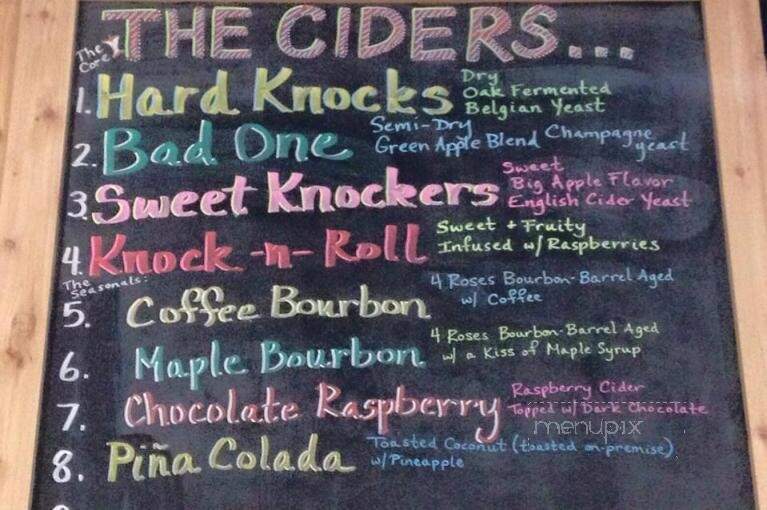 The Core THE CIDERS...
1. Hard Knocks Dry
Oak Fermented
Belgian Yeast
2. Bad One Semi-Dry
Green Apple Blend Champagne yeast
3. Sweet Knockers Sweet
Big Apple Flavor
English Cider Yeast
4. Knock-n-Roll Sweet + Fruity
Infused w/ Raspberries
The Seasonals:
5. Coffee Bourbon 4 Roses Bourbon-Barrel Aged
w/ Coffee
6. Maple Bourbon 4 Roses Bourbon-Barrel Aged
w/ a Kiss of Maple Syrup
7. Chocolate Raspberry Raspberry Cider
Topped w/ Dark Chocolate
menupix
8. Piña Colada Toasted Coconut (toasted on-premise)
w/ Pineapple